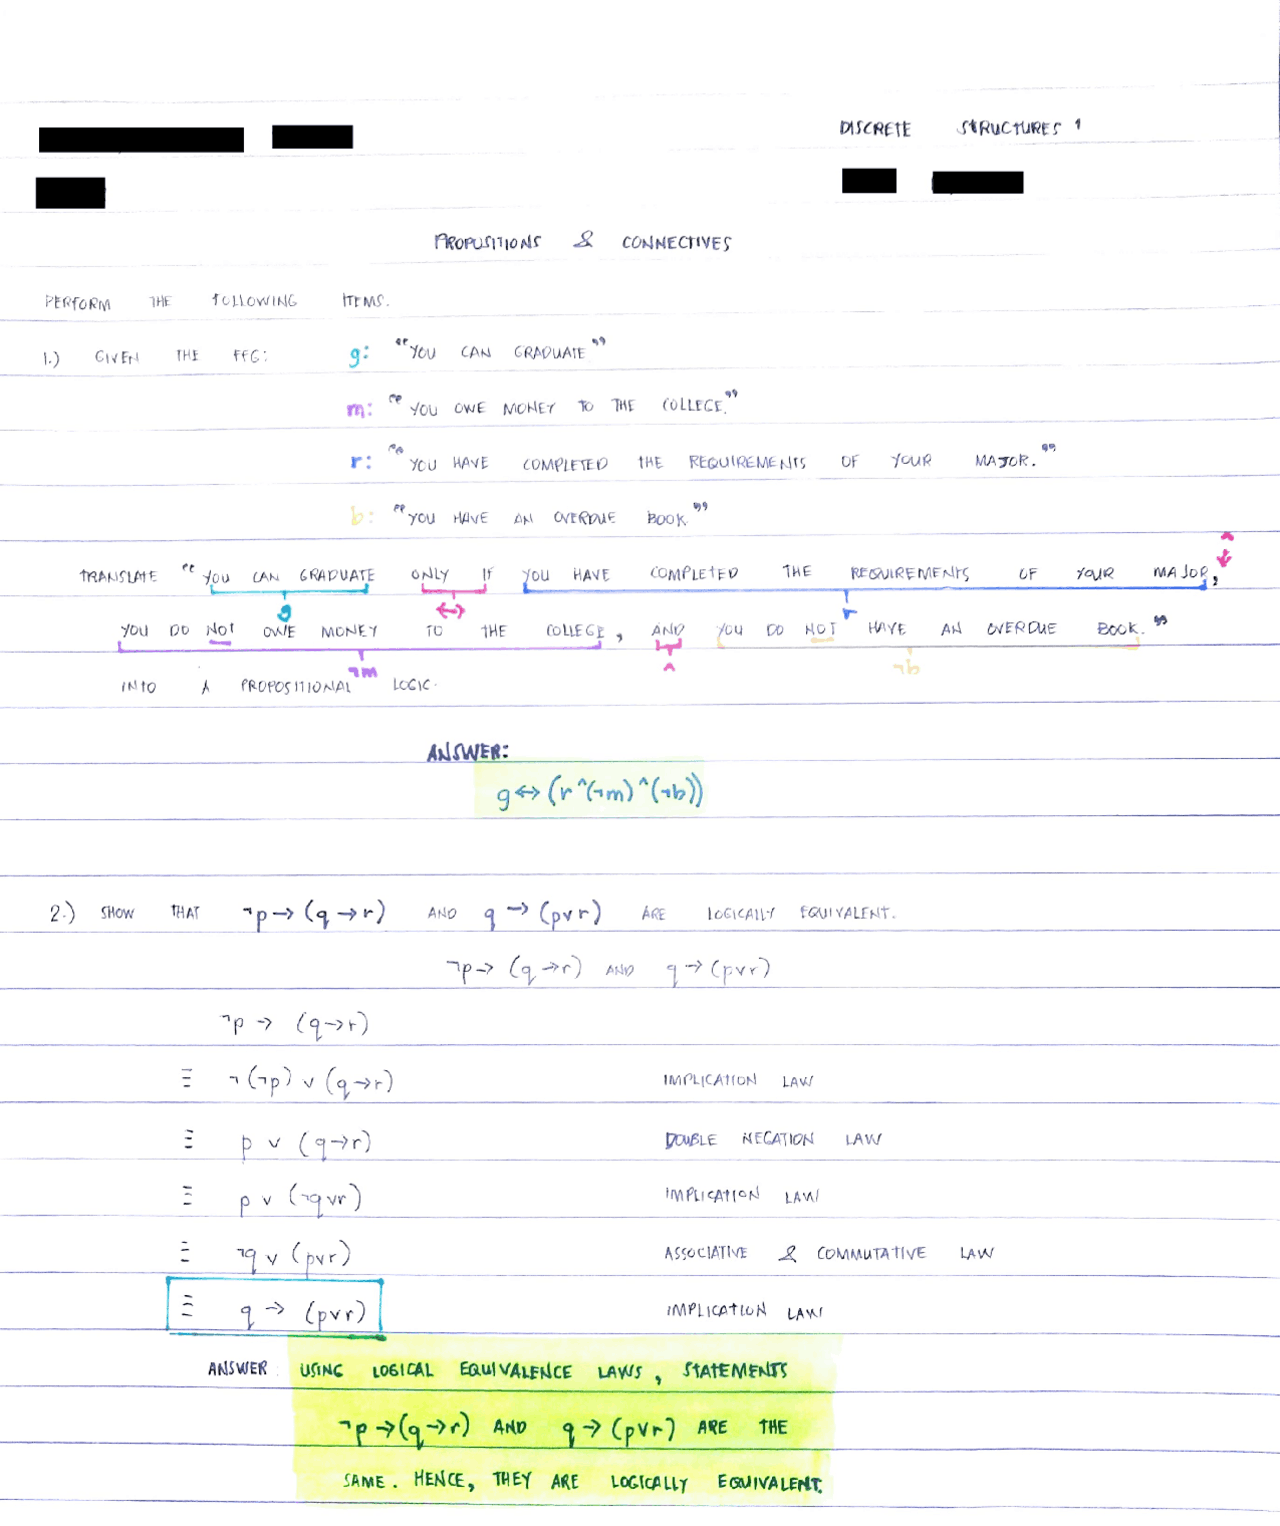 DISCRETE STRUCTURES 1
PROPOSITIONS & CONNECTIVES
PERFORM THE FOLLOWING ITEMS.
1.) GIVEN THE FFG: g: "YOU CAN GRADUATE"
m: "YOU OWE MONEY TO THE COLLEGE."
r: "YOU HAVE COMPLETED THE REQUIREMENTS OF YOUR MAJOR."
b: "YOU HAVE AN OVERDUE BOOK"
^
TRANSLATE "YOU CAN GRADUATE ONLY IF YOU HAVE COMPLETED THE REQUIREMENTS OF YOUR MAJOR,
g ↔ r
YOU DO NOT OWE MONEY TO THE COLLEGE, AND YOU DO NOT HAVE AN OVERDUE BOOK."
¬m ^ ¬b
INTO A PROPOSITIONAL LOGIC.
ANSWER:
g↔(r^(¬m)^(¬b))
2.) SHOW THAT ¬p→(q→r) AND q→(p∨r) ARE LOGICALLY EQUIVALENT.
¬p→(q→r) AND q→(p∨r)
¬p → (q→r)
≡ ¬(¬p) ∨ (q→r) IMPLICATION LAW
≡ p ∨ (q→r) DOUBLE NEGATION LAW
≡ p ∨ (¬q∨r) IMPLICATION LAW
≡ ¬q ∨ (p∨r) ASSOCIATIVE & COMMUTATIVE LAW
≡ q → (p∨r) IMPLICATION LAW
ANSWER: USING LOGICAL EQUIVALENCE LAWS, STATEMENTS
¬p→(q→r) AND q→(p∨r) ARE THE
SAME. HENCE, THEY ARE LOGICALLY EQUIVALENT.